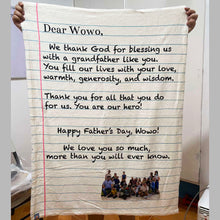 Dear Wowo,
We thank God for blessing us
with a grandfather like you.
You fill our lives with your love,
warmth, generosity, and wisdom.
Thank you for all that you do
for us. You are our hero!
Happy Father's Day, Wowo!
We love you so much,
more than you will ever know.